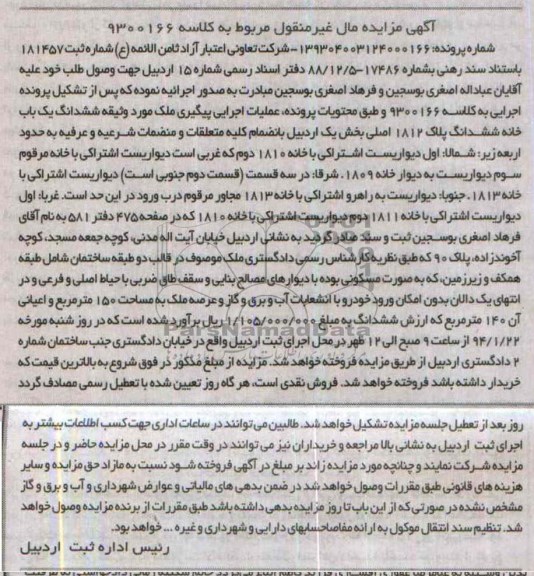 آگهی مزایده مال غیرمنقول مربوط به کلاسه ۹۳۰۰۱۶۶
شماره پرونده: ۱۳۹۳۰۴۰۰۳۱۲۴۰۰۰۱۶۶- شرکت تعاونی اعتبار آزاد ثامن الائمه (ع) شماره ثبت ۱۸۱۴۵۷
باستناد سند رهنی بشماره ۱۷۴۸۶-۸۸/۱۲/۵ دفتر اسناد رسمی شماره ۱۵ اردبیل جهت وصول طلب خود علیه
آقایان عباداله اصغری بوسجین و فرهاد اصغری بوسجین مبادرت به صدور اجرائیه نموده که پس از تشکیل پرونده
اجرایی به کلاسه ۹۳۰۰۱۶۶ و طبق محتویات پرونده، عملیات اجرایی پیگیری ملک مورد وثیقه ششدانگ یک باب
خانه ششدانگ پلاک ۱۸۱۲ اصلی بخش یک اردبیل بانضمام کلیه متعلقات و منضمات شرعیه و عرفیه به حدود
اربعه زیر: شمالا: اول دیواریست اشتراکی با خانه ۱۸۱۰ دوم که غربی است دیواریست اشتراکی با خانه مرقوم
سوم دیواریست به دیوار خانه ۱۸۰۹. شرقا: در سه قسمت (قسمت دوم جنوبی است) دیواریست اشتراکی با
خانه ۱۸۱۳. جنوبا: دیواریست به راهرو اشتراکی با خانه ۱۸۱۳ مجاور مرقوم درب ورود در این حد است. غربا: اول
دیواریست اشتراکی با خانه ۱۸۱۱ دوم دیواریست اشتراکی با خانه ۱۸۱۰ که در صفحه ۴۷۵ دفتر ۵۸۱ به نام آقای
فرهاد اصغری بوسجین ثبت و سند صادر گردید به نشانی اردبیل خیابان آیت اله مدنی، کوچه جمعه مسجد، کوچه
آخوندزاده، پلاک ۹۰ که طبق نظریه کارشناس رسمی دادگستری ملک موصوف در قالب دو طبقه ساختمان شامل طبقه
همکف و زیرزمین، که به صورت مسکونی بوده با دیوارهای مصالح بنایی و سقف طاق ضربی با حیاط اصلی و فرعی و در
انتهای یک دالان بدون امکان ورود خودرو با انشعابات آب و برق و گاز و عرصه ملک به مساحت ۱۵۰ مترمربع و اعیانی
آن ۱۴۰ مترمربع که ارزش ششدانگ به مبلغ ۱/۱۰۵/۰۰۰/۰۰۰ ریال برآورد شده است که در روز شنبه مورخه
۹۴/۱/۲۲ از ساعت ۹ صبح الی ۱۲ ظهر در محل اجرای ثبت اردبیل واقع در خیابان دادگستری جنب ساختمان شماره
۲ دادگستری اردبیل از طریق مزایده فروخته خواهد شد. مزایده از مبلغ مذکور در فوق شروع به بالاترین قیمت که
خریدار داشته باشد فروخته خواهد شد. فروش نقدی است، هر گاه روز تعیین شده با تعطیل رسمی مصادف گردد
روز بعد از تعطیل جلسه مزایده تشکیل خواهد شد. طالبین می توانند در ساعات اداری جهت کسب اطلاعات بیشتر به
اجرای ثبت اردبیل به نشانی بالا مراجعه و خریداران نیز می توانند در وقت مقرر در محل مزایده حاضر و در جلسه
مزایده شرکت نمایند و چنانچه مورد مزایده زاند بر مبلغ در آگهی فروخته شود نسبت به مازاد حق مزایده و سایر
هزینه های قانونی طبق مقررات وصول خواهد شد در ضمن بدهی های مالیاتی و عوارض شهرداری و آب و برق و گاز
مشخص نشده در صورتی که از این باب تا روز مزایده بدهی داشته باشد طبق مقررات از برنده مزایده وصول خواهد
شد. تنظیم سند انتقال موکول به ارائه مفاصاحسابهای دارایی و شهرداری و غیره ... خواهد بود.
رئیس اداره ثبت اردبیل
ParsNamadData